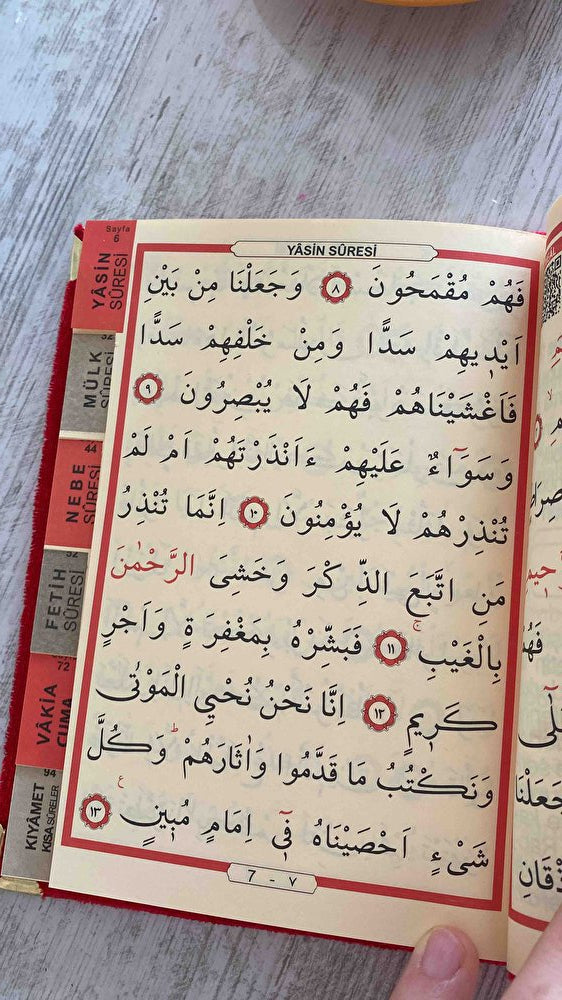 YÂSİN SÛRESİ
فَهُمْ مُقْمَحُونَ ٨ وَجَعَلْنَا مِنْ بَيْنِ
اَيْدٖيهِمْ سَدًّا وَمِنْ خَلْفِهِمْ سَدًّا
فَاَغْشَيْنَاهُمْ فَهُمْ لَا يُبْصِرُونَ ٩
وَسَوَٓاءٌ عَلَيْهِمْ ءَاَنْذَرْتَهُمْ اَمْ لَمْ
تُنْذِرْهُمْ لَا يُؤْمِنُونَ ١٠ اِنَّمَا تُنْذِرُ
مَنِ اتَّبَعَ الذِّكْرَ وَخَشِىَ الرَّحْمٰنَ
بِالْغَيْبِۚ ١١ فَبَشِّرْهُ بِمَغْفِرَةٍ وَاَجْرٍ
كَرٖيمٍ ١٢ اِنَّا نَحْنُ نُحْيِ الْمَوْتٰى
وَنَكْتُبُ مَا قَدَّمُوا وَاٰثَارَهُمْۜ وَكُلَّ
شَىْءٍ اَحْصَيْنَاهُ فٖٓى اِمَامٍ مُبٖينٍ ١٣ ع
7 - ٧
Sayfa
6
YÂSİN
SÛRESİ
MÜLK
SÛRESİ
44
NEBE
SÛRESİ
52
FETİH
SÛRESİ
72
VÂKIA
CUMA
94
KIYÂMET
KISA SÛRELER